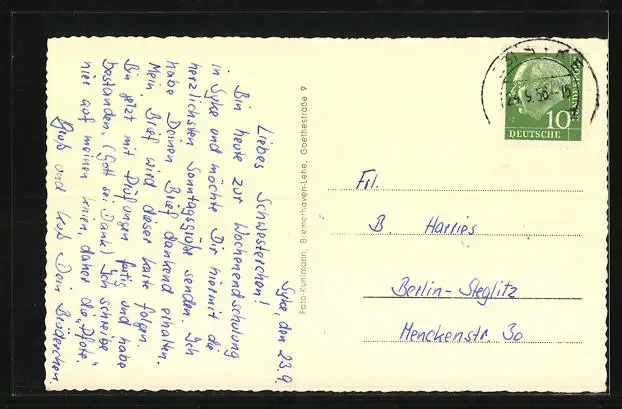 Syke, den 23.9.
Liebes Schwesterchen!
Bin heute zur Wochenendschulung
in Syke und möchte Dir hiermit die
herzlichsten Sonntagsgrüße senden. Ich
habe Deinen Brief dankend erhalten.
Mein Brief wird dieser Karte folgen.
Bin jetzt mit Prüfungen fertig und habe
bestanden. (Gott sei Dank) Ich schreibe
hier auf meinen Knien, daher die „Pfote“
Gruß und Kuß Dein Brüderchen
Foto-Kuhlmann, Bremerhaven-Lehe, Goethestraße 9
10
DEUTSCHE
BUNDESPOST
Frl.
B. Harries
Berlin-Steglitz
Menckenstr. 30